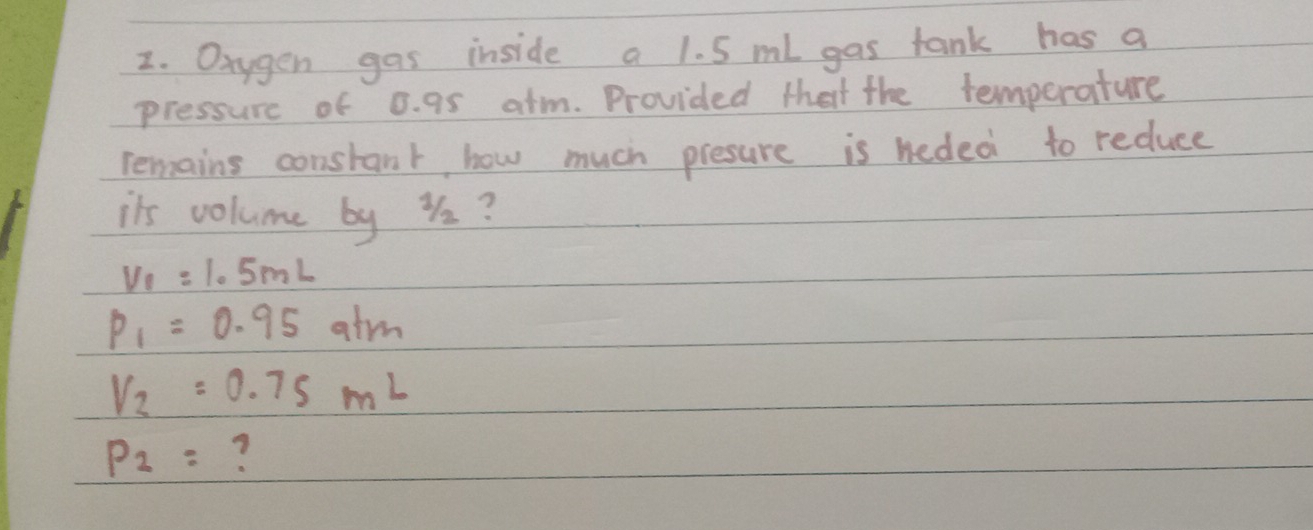 1. Oxygen gas inside a 1.5 mL gas tank has a
pressure of 0.95 atm. Provided that the temperature
remains constant, how much presure is neded to reduce
its volume by 1/2 ?
V1 = 1.5mL
P1 = 0.95 atm
V2 = 0.75 mL
P2 = ?